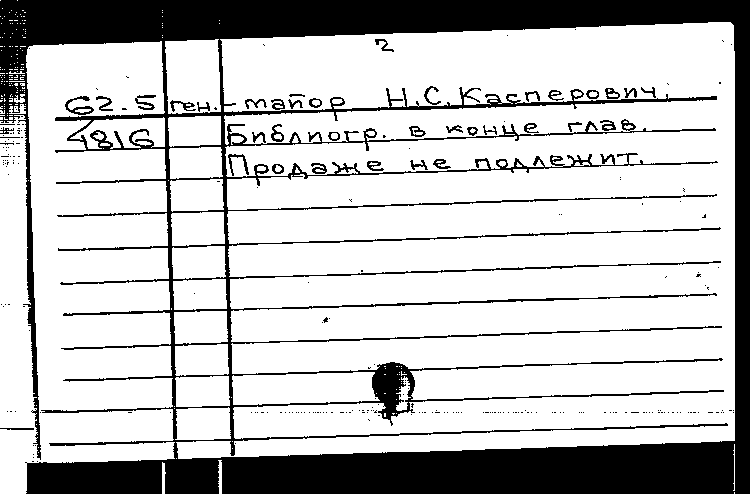 2
62.5 ген.-майор Н.С.Касперович.
4816 Библиогр. в конце глав.
Продаже не подлежит.